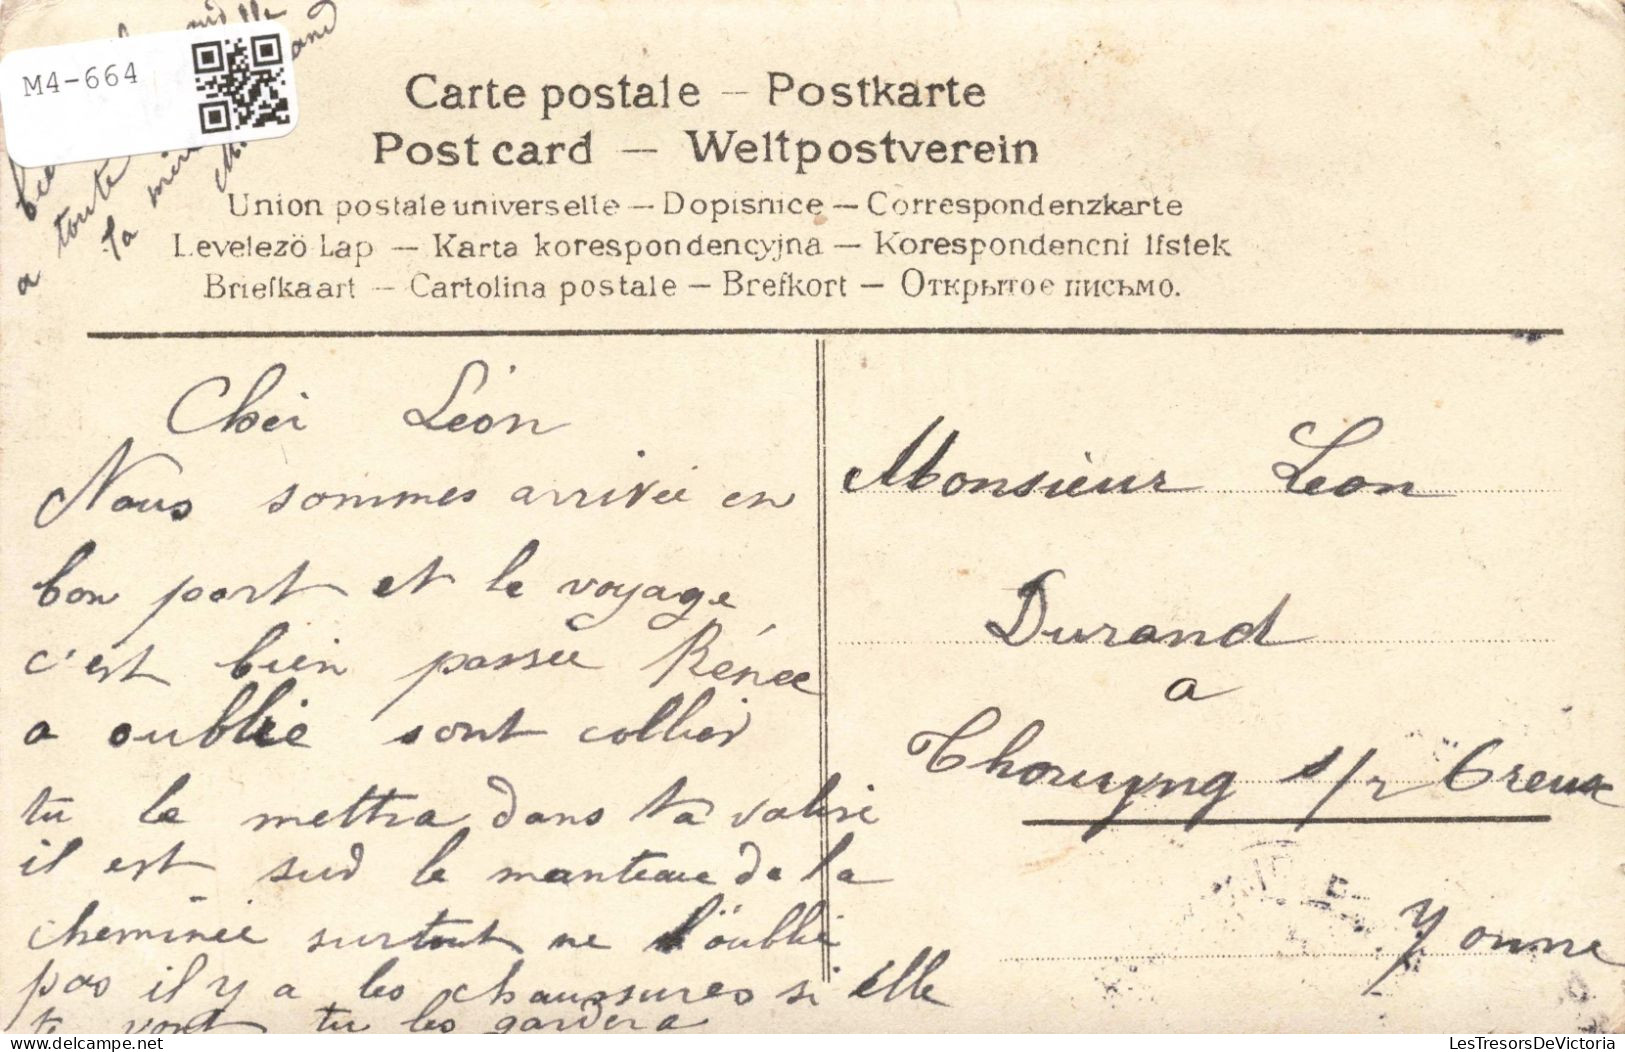 M4-664
a toute
la
Carte postale — Postkarte
Post card — Weltpostverein
Union postale universelle — Dopisnice — Correspondenzkarte
Levelezö Lap — Karta korespondencyjna — Korespondencni lístek
Briefkaart — Cartolina postale — Brefkort — Открытое письмо.
Cher Léon
Nous sommes arrivée en
bon port et le voyage
c'est bien passée Rénee
a oublie sont collier
tu le mettra dans ta valise
il est sur le manteau de la
cheminée surtout ne l'oublie
pas il y a les chaussures si elle
te vont tu les gardera
Monsieur Leon
Durand
a
s/r Creux
Yonne
LesTresorsDeVictoria
delcampe.net